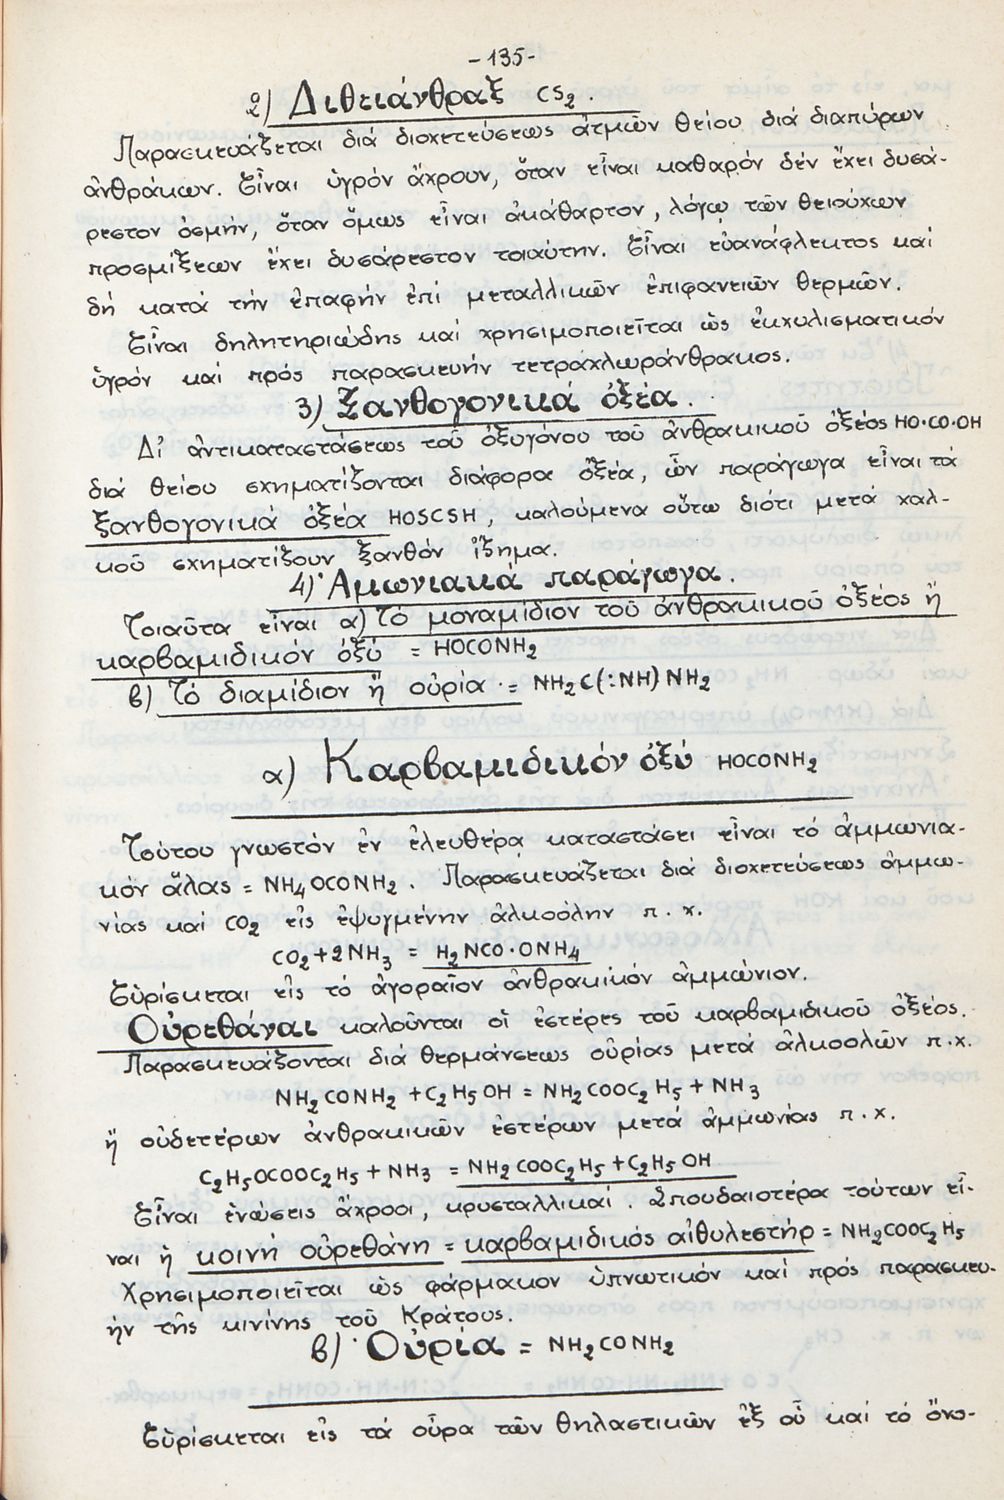 -135-
2) Διθειάνθραξ CS2.
Παρασκευάζεται διά διοχετεύσεως ἀτμῶν θείου διά διαπύρων
ἀνθράκων. Εἶναι ὑγρόν ἄχρουν, ὅταν εἶναι καθαρόν δέν ἔχει δυσά-
ρεστον ὀσμήν, ὅταν ὅμως εἶναι ἀκάθαρτον, λόγῳ τῶν θειούχων
προσμίξεων ἔχει δυσάρεστον τοιαύτην. Εἶναι εὐανάφλεκτος καί
δή κατά τήν ἐπαφήν ἐπί μεταλλικῶν ἐπιφανειῶν θερμῶν.
Εἶναι δηλητηριώδης καί χρησιμοποιεῖται ὡς ἐκχυλισματικόν
ὑγρόν καί πρός παρασκευήν τετραχλωράνθρακος.
3) Ξανθογονικά ὀξέα.
Δι' ἀντικαταστάσεως τοῦ ὀξυγόνου τοῦ ἀνθρακικοῦ ὀξέος HO·CO·OH
διά θείου σχηματίζονται διάφορα ὀξέα, ὧν παράγωγα εἶναι τά
ξανθογονικά ὀξέα HOSCSH, καλούμενα οὕτω διότι μετά χαλ-
κοῦ σχηματίζουν ξανθόν ἵζημα.
4) Ἀμωνιακά παράγωγα.
Τοιαῦτα εἶναι α) Τό μοναμίδιον τοῦ ἀνθρακικοῦ ὀξέος ἤ
καρβαμιδικόν ὀξύ = HOCONH2
β) Τό διαμίδιον ἤ οὐρία = NH2C(:NH)NH2
α) Καρβαμιδικόν ὀξύ HOCONH2
Τούτου γνωστόν ἐν ἐλευθέρᾳ καταστάσει εἶναι τό ἀμμωνια-
κόν ἅλας = NH4OCONH2. Παρασκευάζεται διά διοχετεύσεως ἀμμω-
νίας καί CO2 εἰς ἐψυγμένην ἀλκοόλην π.χ.
CO2+2NH3 = H2NCO·ONH4
Εὑρίσκεται εἰς τό ἀγοραῖον ἀνθρακικόν ἀμμώνιον.
Οὐρεθάναι καλοῦνται οἱ ἐστέρες τοῦ καρβαμιδικοῦ ὀξέος.
Παρασκευάζονται διά θερμάνσεως οὐρίας μετά ἀλκοολῶν π.χ.
NH2CONH2 + C2H5OH = NH2COOC2H5 + NH3
ἤ οὐδετέρων ἀνθρακικῶν ἐστέρων μετά ἀμμωνίας π.χ.
C2H5OCOOC2H5 + NH3 = NH2COOC2H5 + C2H5OH
Εἶναι ἑνώσεις ἄχροοι, κρυσταλλικαί. Σπουδαιοτέρα τούτων εἶ-
ναι ἡ κοινή οὐρεθάνη = καρβαμιδικός αἰθυλεστήρ = NH2COOC2H5
Χρησιμοποιεῖται ὡς φάρμακον ὑπνωτικόν καί πρός παρασκευ-
ήν τῆς κινίνης τοῦ Κράτους.
β) Οὐρία = NH2CONH2
Εὑρίσκεται εἰς τά οὖρα τῶν θηλαστικῶν ἐξ οὗ καί τό ὄνο-